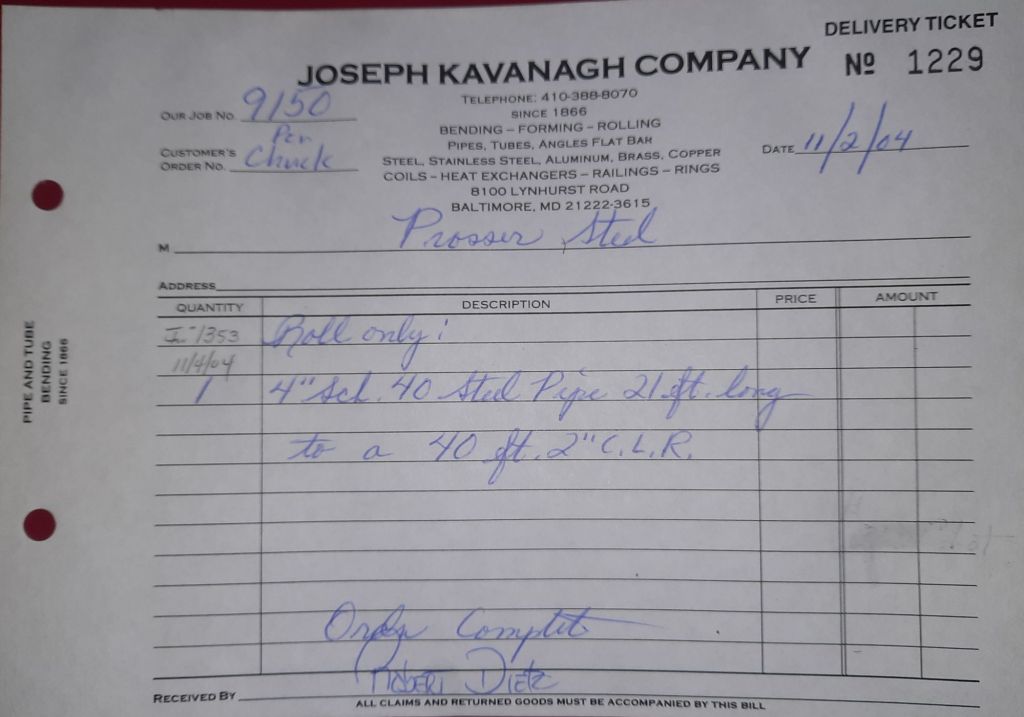 DELIVERY TICKET
JOSEPH KAVANAGH COMPANY
Nº 1229
TELEPHONE: 410-388-8070
SINCE 1866
BENDING – FORMING – ROLLING
PIPES, TUBES, ANGLES FLAT BAR
STEEL, STAINLESS STEEL, ALUMINUM, BRASS, COPPER
COILS – HEAT EXCHANGERS – RAILINGS – RINGS
8100 LYNHURST ROAD
BALTIMORE, MD 21222-3615
OUR JOB NO. 9150
CUSTOMER'S ORDER NO. Per Chuck
DATE 11/2/04
M Prosser Steel
ADDRESS
QUANTITY DESCRIPTION PRICE AMOUNT
I-1353 Roll only:
11/4/04
1 4" Sch. 40 Steel Pipe 21 ft. long
to a 40 ft. 2" C.L.R.
Order Complet
Robert Dietz
RECEIVED BY
ALL CLAIMS AND RETURNED GOODS MUST BE ACCOMPANIED BY THIS BILL
PIPE AND TUBE
BENDING
SINCE 1866